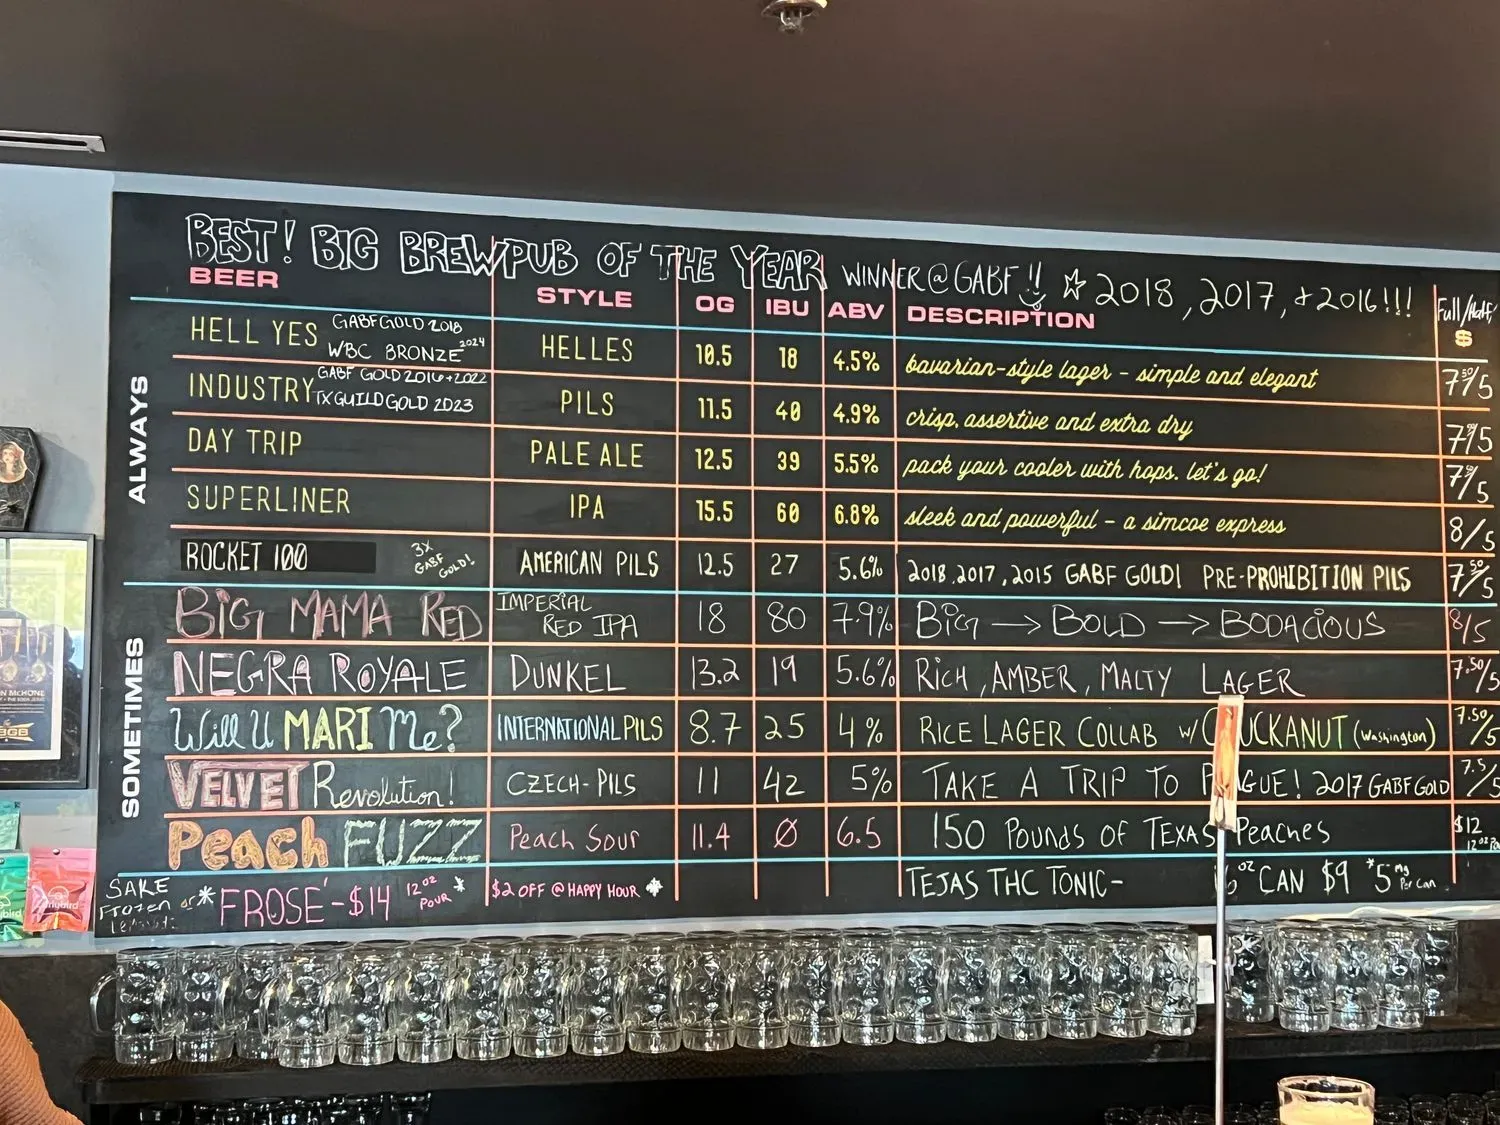 BEST! BIG BREWPUB OF THE YEAR WINNER @ GABF!! ☆ 2018, 2017, + 2016!!!
BEER STYLE OG IBU ABV DESCRIPTION Full/Half $
ALWAYS
HELL YES GABF GOLD 2018 WBC BRONZE 2024 HELLES 10.5 18 4.5% bavarian-style lager - simple and elegant 7.50/5
INDUSTRY GABF GOLD 2016+2022 TX GUILD GOLD 2023 PILS 11.5 40 4.9% crisp, assertive and extra dry 7.50/5
DAY TRIP PALE ALE 12.5 39 5.5% pack your cooler with hops. let's go! 7.50/5
SUPERLINER IPA 15.5 60 6.8% sleek and powerful - a simcoe express 8/5
ROCKET 100 3X GABF GOLD! AMERICAN PILS 12.5 27 5.6% 2018, 2017, 2015 GABF GOLD! PRE-PROHIBITION PILS 7.50/5
SOMETIMES
BIG MAMA RED IMPERIAL RED IPA 18 80 7.9% BIG → BOLD → BODACIOUS 8/5
NEGRA ROYALE DUNKEL 13.2 19 5.6% RICH, AMBER, MALTY LAGER 7.50/5
Will U MARI Me? INTERNATIONAL PILS 8.7 25 4% RICE LAGER COLLAB W/ CHUCKANUT (Washington) 7.50/5
VELVET Revolution! CZECH-PILS 11 42 5% TAKE A TRIP TO PRAGUE! 2017 GABF GOLD 7.5/5
Peach FUZZ Peach Sour 11.4 Ø 6.5 150 POUNDS OF TEXAS PEACHES $12 12oz
SAKE Frozen or *FROSÉ - $14 12oz POUR * $2 OFF @ HAPPY HOUR * TEJAS THC TONIC- oz CAN $9 *5mg Per Can